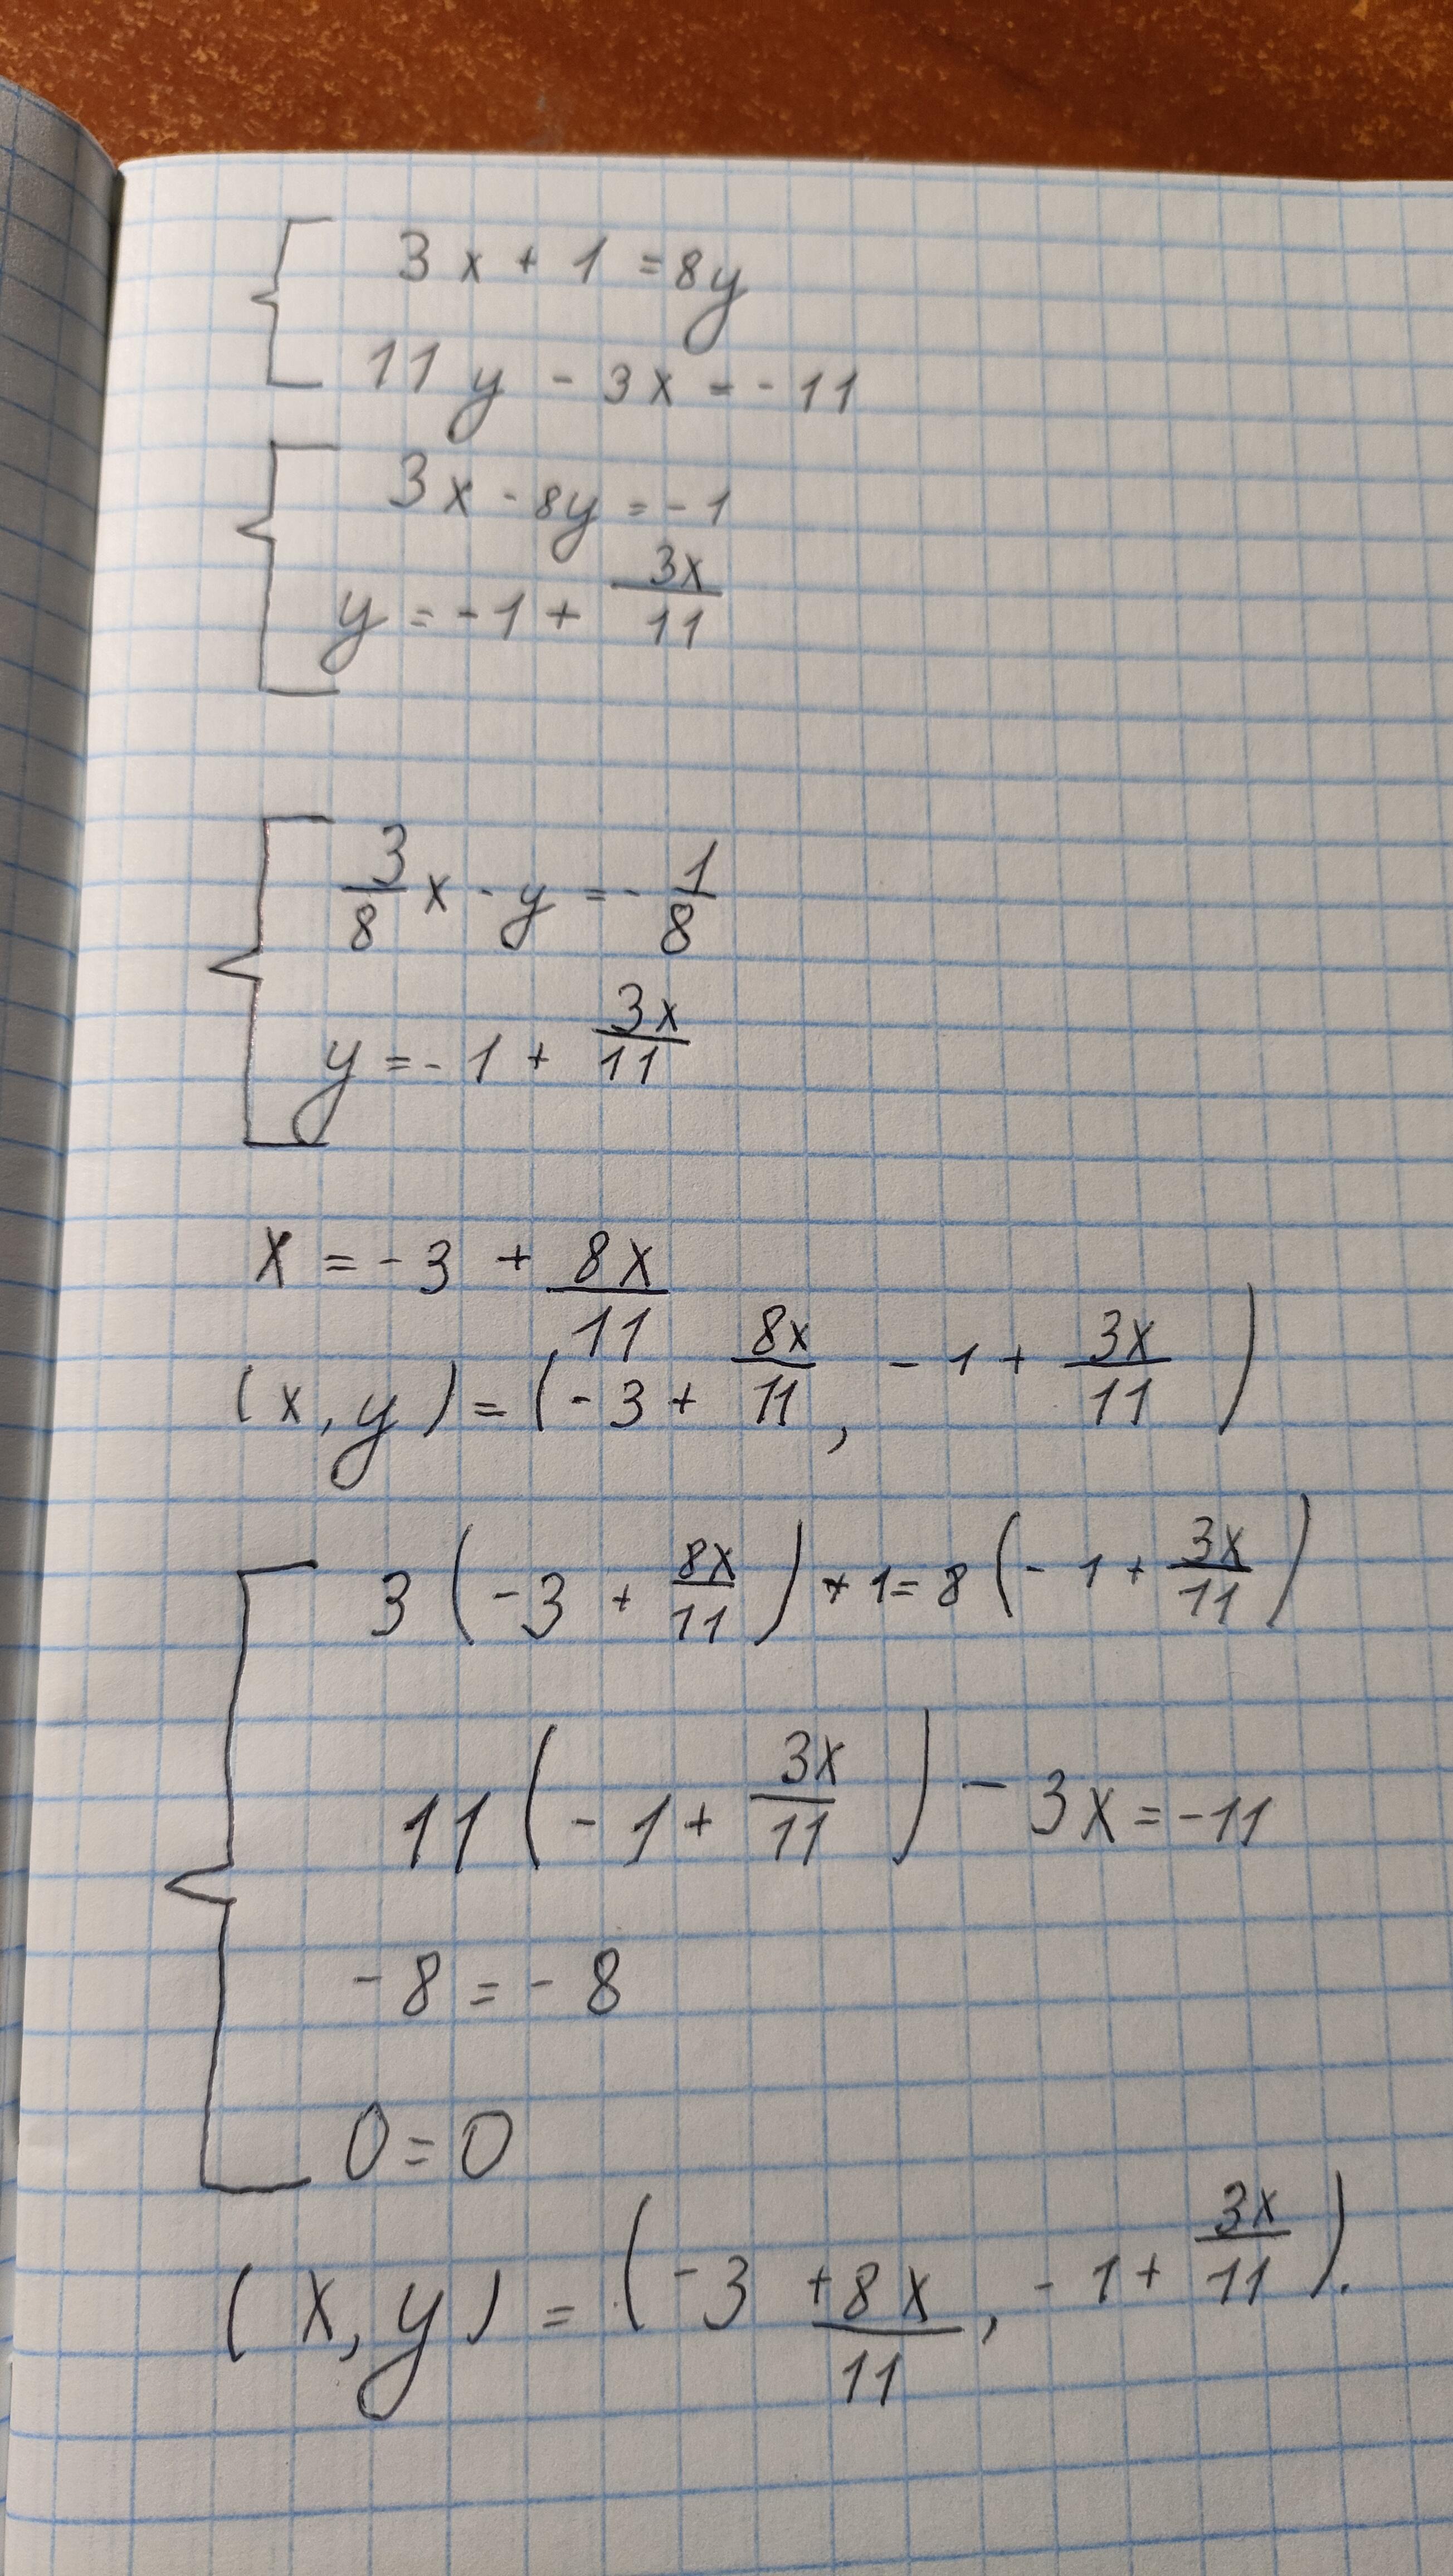 3x + 1 = 8y
11y - 3x = -11
3x - 8y = -1
y = -1 + 3x/11
3/8 x - y = - 1/8
y = -1 + 3x/11
x = -3 + 8x/11
(x, y) = (-3 + 8x/11, -1 + 3x/11)
3(-3 + 8x/11) + 1 = 8(-1 + 3x/11)
11(-1 + 3x/11) - 3x = -11
-8 = -8
0 = 0
(x, y) = (-3 +8x/11, -1 + 3x/11).